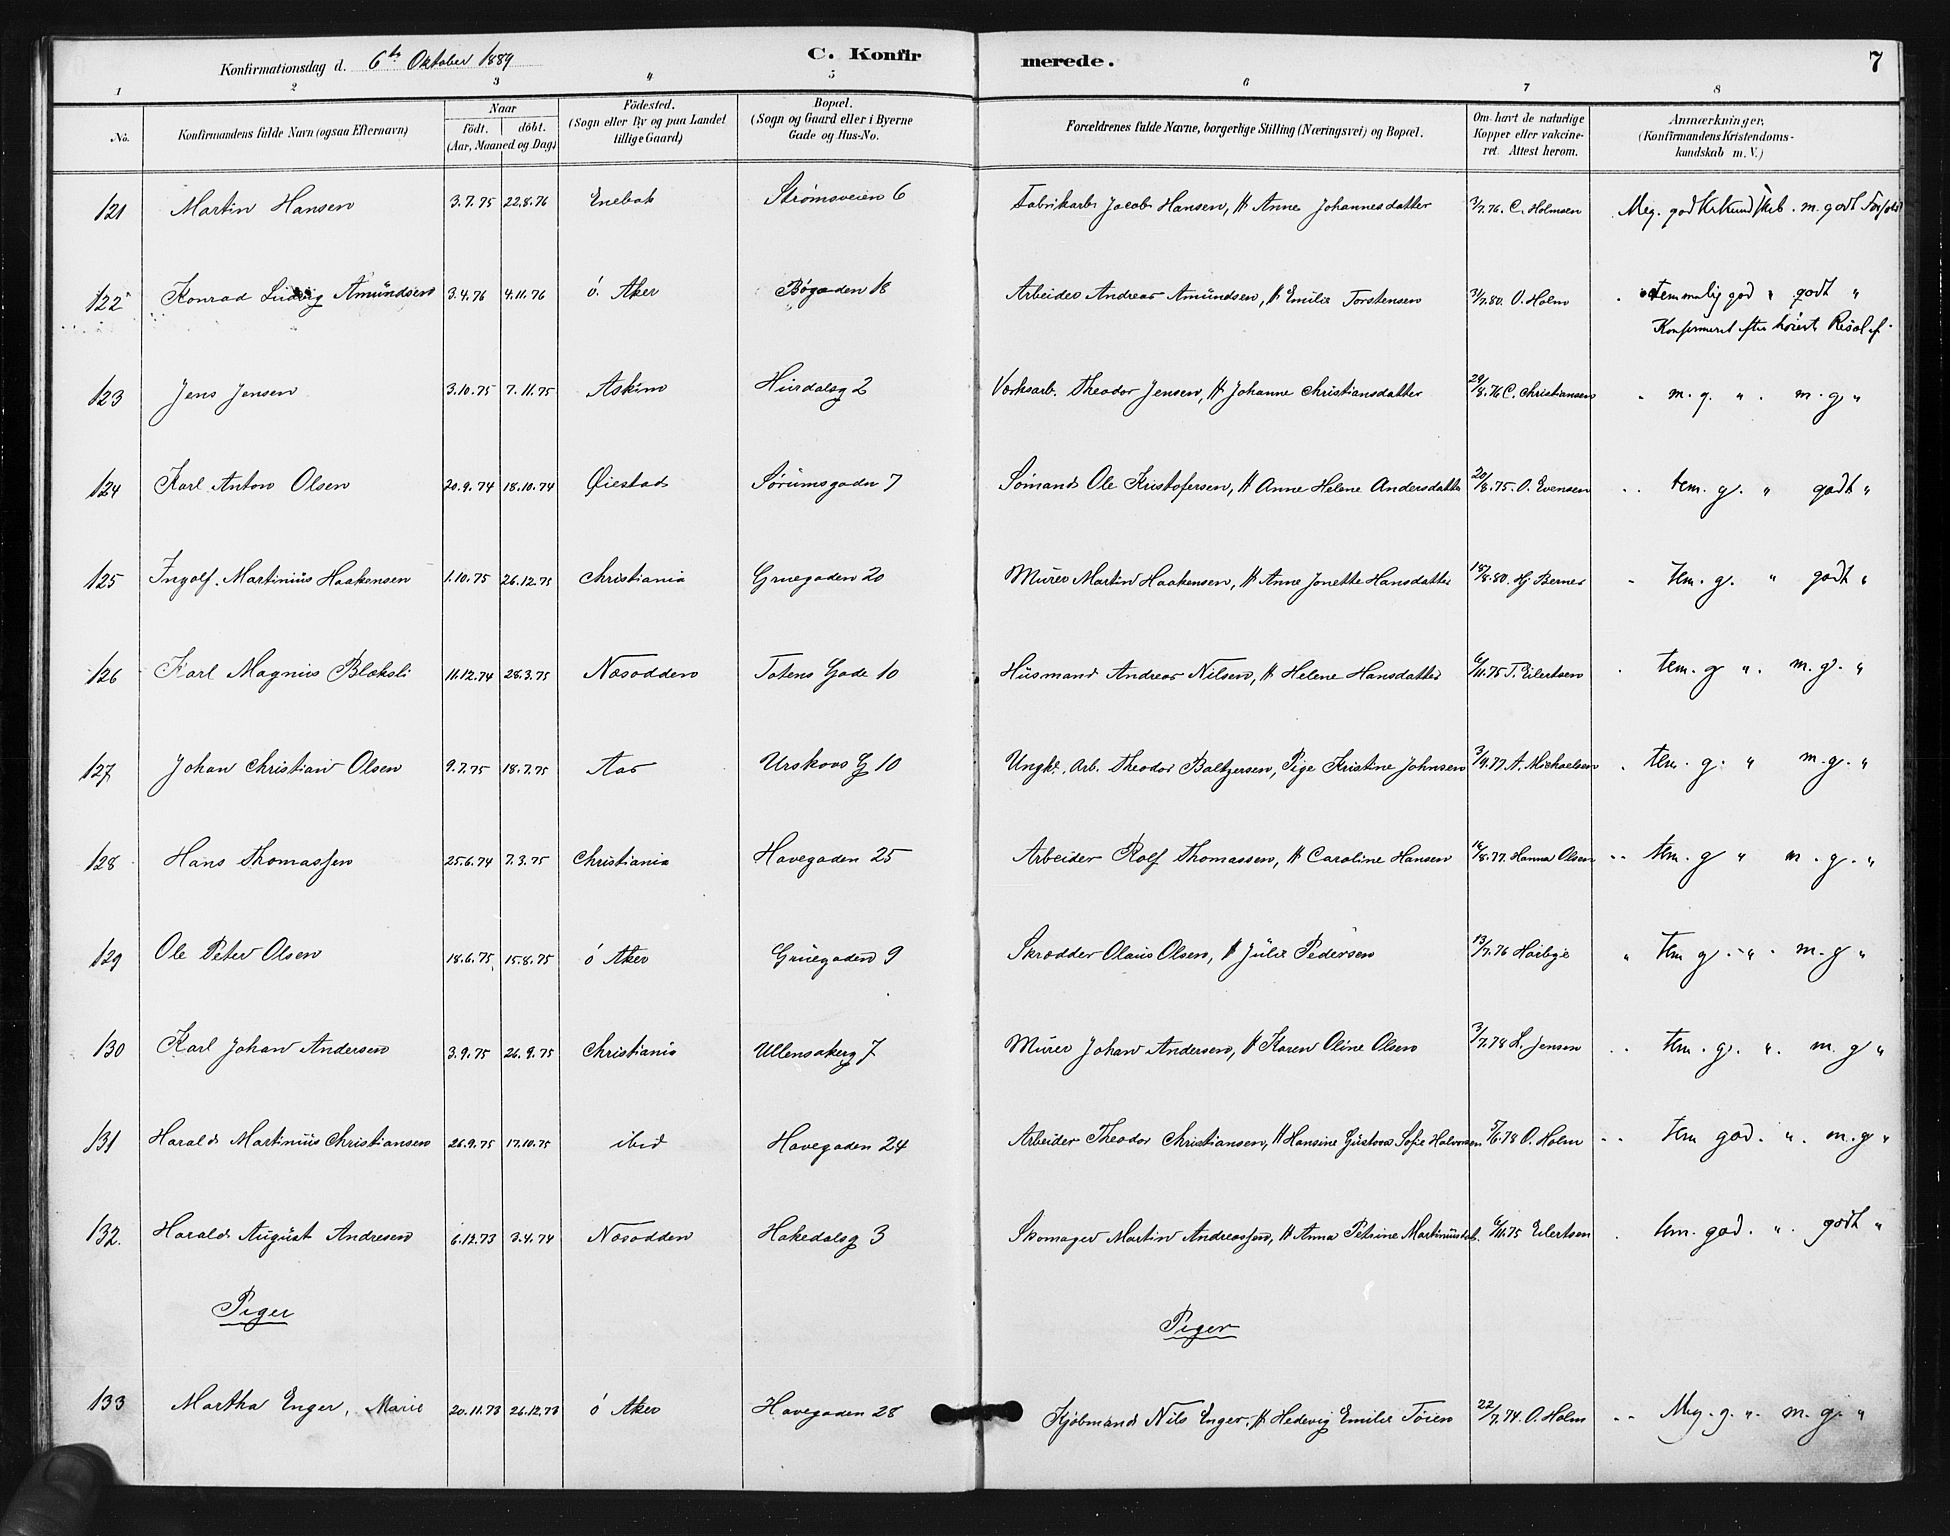 Konfirmationsdag d. 6te Oktober 1889 C. Konfir merede. 7
1 2 3 4 5 6 7 8
No. Konfirmandens fulde Navn (ogsaa Efternavn) Naar født. døbt. (Aar, Maaned og Dag) Fødested. (Sogn eller By og paa Landet tillige Gaard) Bopæl. (Sogn og Gaard eller i Byerne Gade og Hus-No. Forældrenes fulde Navne, borgerlige Stilling (Næringsvei) og Bopæl. Om havt de naturlige Kopper eller vakcineret. Attest herom. Anmærkninger, (Konfirmandens Kristendomskundskab m. V.)
121 Martin Hansen 3.7.75 22.8.76 Enebak Strømsveien 6 Fabrikarb Jacob Hansen, H Anne Johannesdatter 3/7.76. C. Holmsen Meg. god Krkundskab. m. godt Forhold
122 Konrad Ludvig Amundsen 3.4.76 4.11.76 ö. Aker Bøgaden 18 Arbeider Andreas Amundsen, H Emilie Torstensen 31/7.80. O. Holm temmelig god " godt "
Konfirmeret efter høieste Resol
123 Jens Jensen 3.10.75 7.11.75 Askim Hurdalsg 2 Værksarb. Theodor Jensen, H Johanne Christiansdatter 29/8.76 C. Christiansen " m. g. " . m. g "
124 Karl Anton Olsen 20.9.74 18.10.74 Øiestad Sørumsgaden 7 Sömand Ole Kristofersen, H Anne Helene Andersdatter 20/8.75. O. Evensen . . tem. g. " godt "
125 Ingolf. Martinius Haakensen 1.10.75 26.12.75 Christiania Gruegaden 20 Murer Martin Haakensen, H Anne Jonette Hansdatter 18/8.80. Hj Berner " tem. g. " godt "
126 Karl Magnus Blæksli 11.12.74 28.3.75 Næsodden Totens Gade 10 Husmand Andreas Nilsen, H Helene Hansdatter 6/11.75 T. Eilertsen . tem. g ". m. g. "
127 Johan Christian Olsen 9.7.75 18.7.75 Aas Urskovs G 10 Ungk. Arb. Theodor Baltzersen, Pige Kristine Johnsen 3/9.77 A. Michaelsen . tem. g. " m. g. "
128 Hans Thomassen 25.6.74 7.3.75 Christiania Havegaden 25 Arbeider Rolf Thomassen, H Caroline Hansen 16/8.77. Hanna Olsen . . tem. g " m. g. "
129 Ole Peter Olsen 18.6.75 15.8.75 ö Aker Gruegaden 9 Skrædder Olaus Olsen, H Julie Pedersen 13/7.76 Høibye " tem g. ". m. g "
130 Karl Johan Andersen 3.9.75 26.9.75 Christiania Ullensakerg 7 Murer Johan Andersen, H Karen Oline Olsen 3/7.78 L. Jensen . . tem. g. ". m. g "
131 Harald Martinius Christiansen 26.9.75 17.10.75 ibid Havegaden 24 Arbeider Theodor Christiansen, H Hansine Gustava Sofie Halvorsen 5/6.78 O. Holm . . tem god. ". m. g "
132. Harald August Andresen 6.12.73 3.4.74 Næsodden Hakedalsg 3 Skomager Martin Andreassen, H Anna Petrine Martinusdat. 6/11.75 Eilertsen . tem. god. ". godt "
Piger Piger
133 Martha Enger, Marie 20.11.73 26.12.73 ö Aker Havegaden 28 Kjöbmand Nils Enger, H Hedevig Emilie Töien 22/7.74. O. Holm . . Meg. g. ". m. g. "